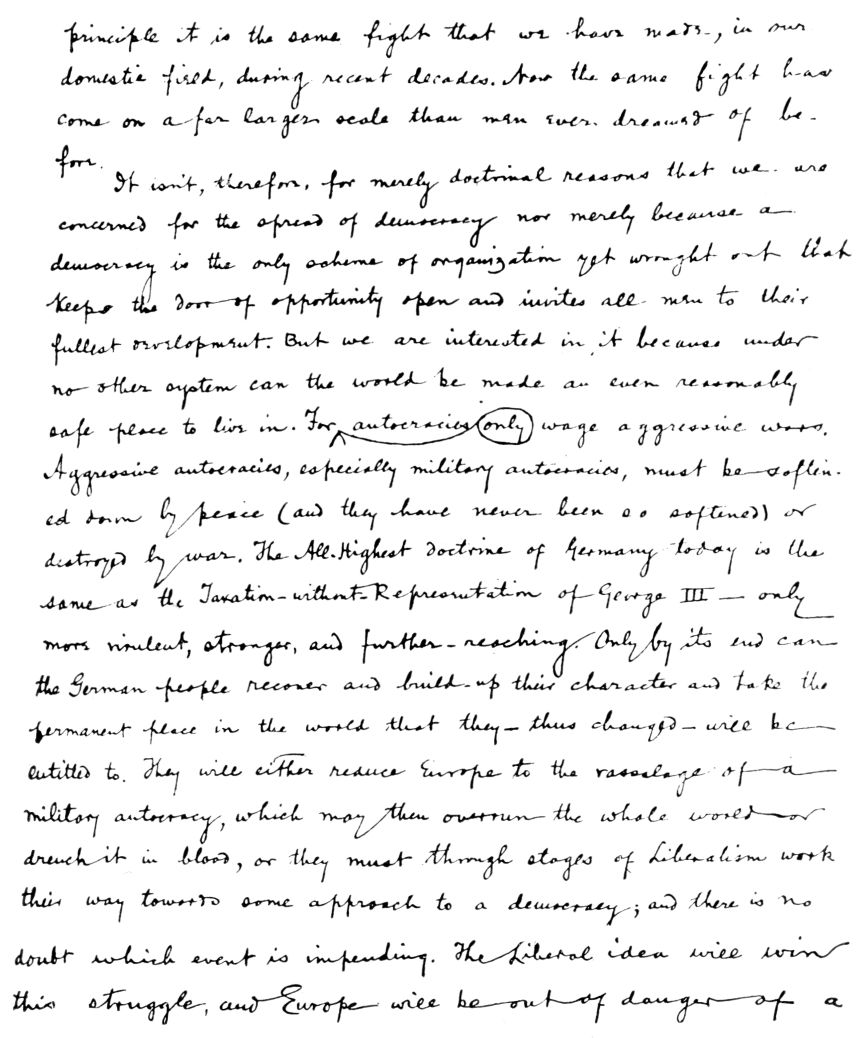 principle it is the same fight that we have made, in our
domestic field, during recent decades. Now the same fight has
come on a far larger scale than men ever dreamed of be-
fore.
It isn't, therefore, for merely doctrinal reasons that we are
concerned for the spread of democracy nor merely because a
democracy is the only scheme of organization yet wrought out that
keeps the door of opportunity open and invites all men to their
fullest development. But we are interested in it because under
no other system can the world be made an even reasonably
safe place to live in. For autocracies only wage aggressive wars.
Aggressive autocracies, especially military autocracies, must be soften-
ed down by peace (and they have never been so softened) or
destroyed by war. The All-Highest doctrine of Germany today is the
same as the Taxation-without-Representation of George III — only
more virulent, stronger, and further-reaching. Only by its end can
the German people recover and build-up their character and take the
permanent place in the world that they — thus changed — will be
entitled to. They will either reduce Europe to the vassalage of a
military autocracy, which may then overrun the whole world or
drench it in blood, or they must through stages of Liberalism work
their way towards some approach to a democracy; and there is no
doubt which event is impending. The Liberal idea will win
this struggle, and Europe will be out of danger of a